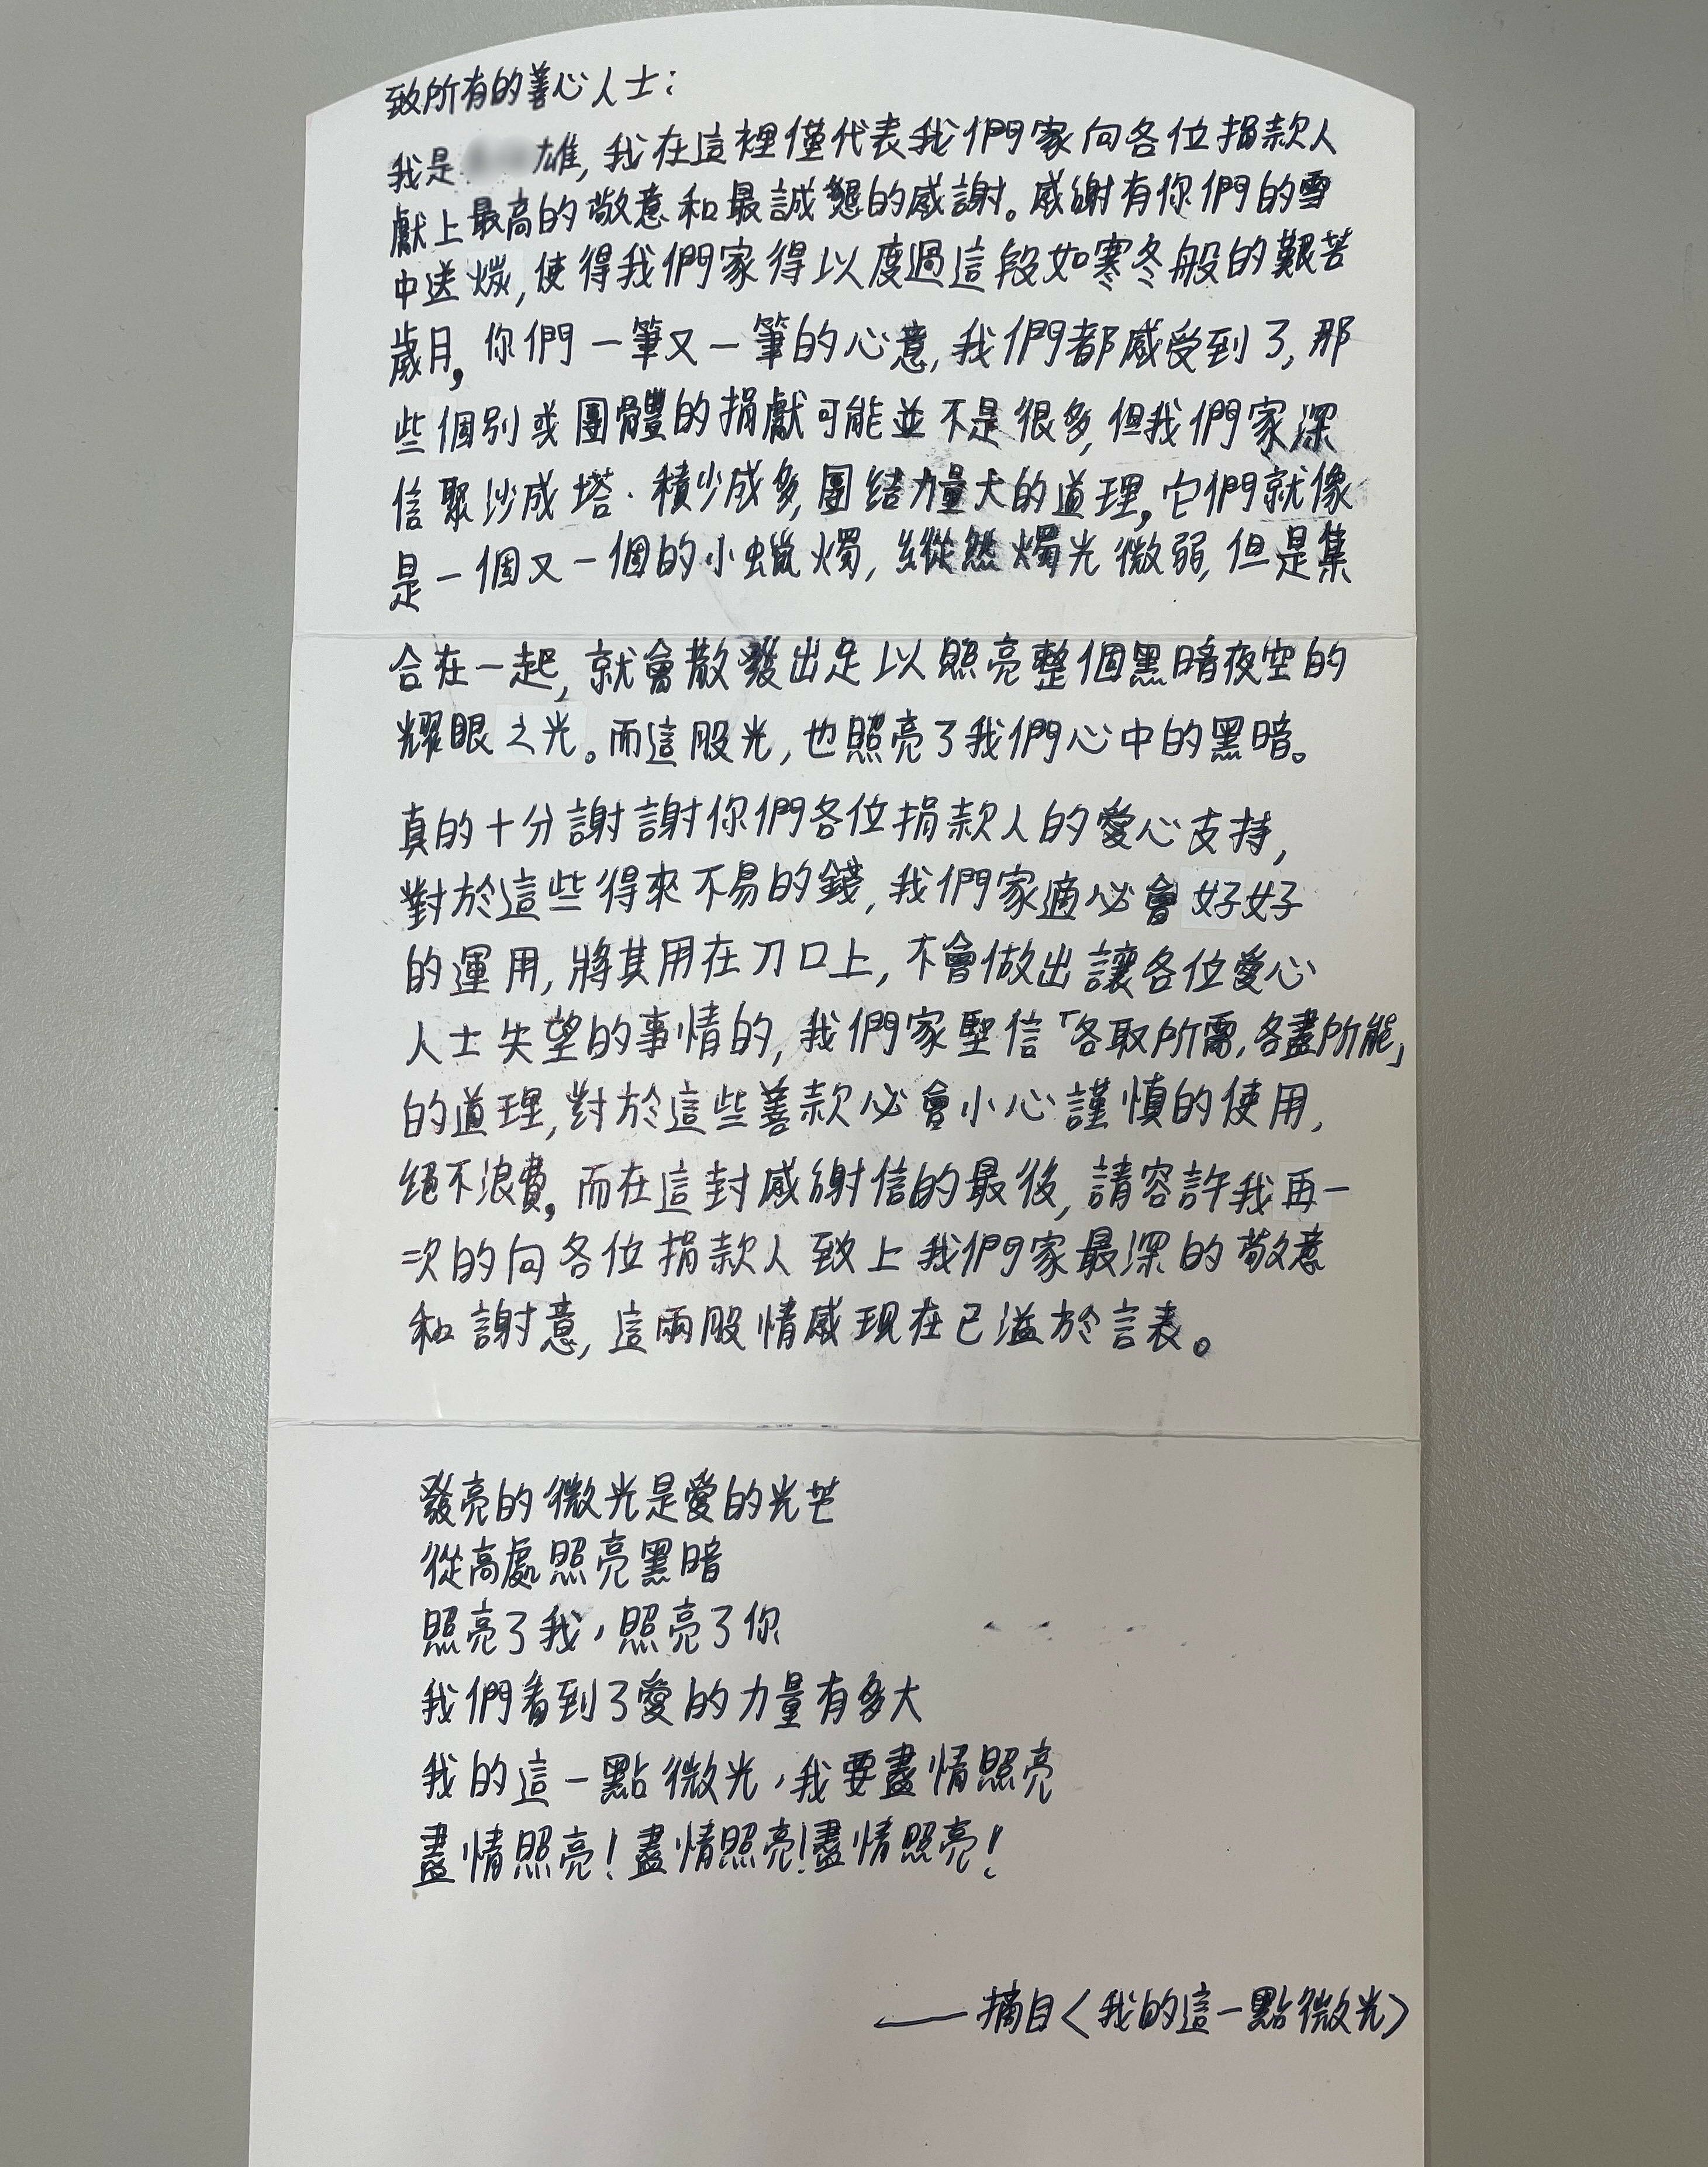 致所有的善心人士：
我是 雄，我在這裡僅代表我們家向各位捐款人
獻上最高的敬意和最誠懇的感謝。感謝有你們的雪
中送炭，使得我們家得以度過這段如寒冬般的艱苦
歲月，你們一筆又一筆的心意，我們都感受到了，那
些個別或團體的捐獻可能並不是很多，但我們家深
信聚沙成塔．積少成多，團結力量大的道理，它們就像
是一個又一個的小蠟燭，縱然燭光微弱，但是集
合在一起，就會散發出足以照亮整個黑暗夜空的
耀眼之光。而這股光，也照亮了我們心中的黑暗。
真的十分謝謝你們各位捐款人的愛心支持，
對於這些得來不易的錢，我們家適必會好好
的運用，將其用在刀口上，不會做出讓各位愛心
人士失望的事情的，我們家堅信「各取所需，各盡所能」
的道理，對於這些善款必會小心謹慎的使用，
絕不浪費，而在這封感謝信的最後，請容許我再一
次的向各位捐款人致上我們家最深的敬意
和謝意，這兩股情感現在已溢於言表。
發亮的微光是愛的光芒
從高處照亮黑暗
照亮了我，照亮了你
我們看到了愛的力量有多大
我的這一點微光，我要盡情照亮
盡情照亮！盡情照亮！盡情照亮！
——摘自〈我的這一點微光〉